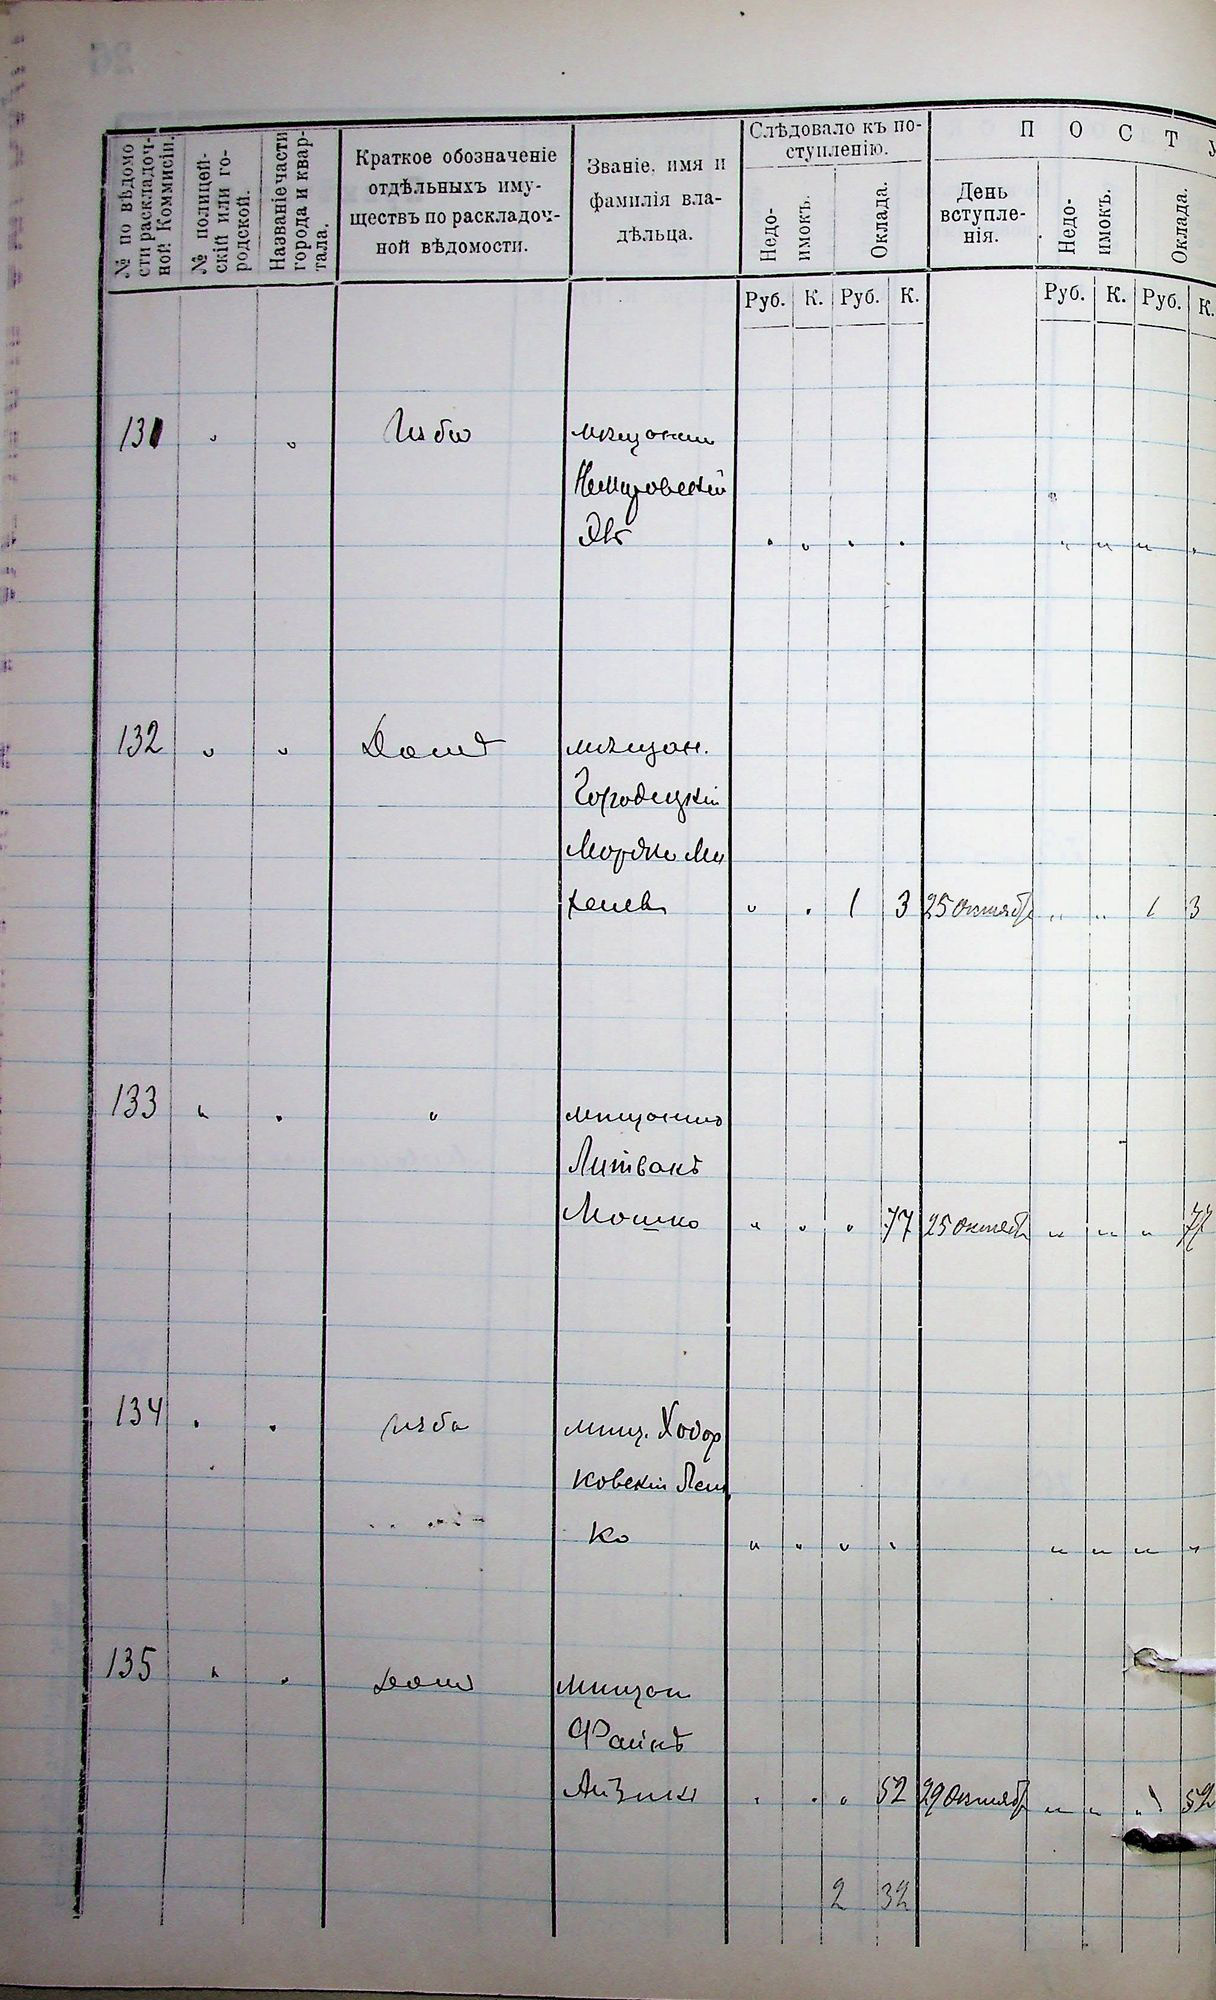 № по вѣдомости раскладочной Коммисіи.
№ полицейскій или городской.
Названіе части города и квартала.
Краткое обозначеніе
отдѣльныхъ иму-
ществъ по раскладоч-
ной вѣдомости.
Званіе, имя и
фамилія вла-
дѣльца.
Слѣдовало къ по-
ступленію.
Недо-
имокъ.
Оклада.
П О С Т У
День
вступле-
нія.
Недо-
имокъ.
Оклада.
Руб. К. Руб. К. Руб. К. Руб. К.
131 " " Изба мѣщанин
Немировскій
" " " " " " " "
132 " " Домъ мѣщан.
Городецкій
Мордко Ми
хелев " " 1 3 25 октяб " " 1 3
133 " " " мѣщанинъ
Литвакъ
Мошко " " " 77 25 октяб " " " 77
134 " " изба мѣщ. Ходор
ковскій Лей
ко " " " " " " " "
135 " " домъ мѣщан
Файнъ
Айзикъ " " " 52 29 октяб " " " 52
2 32